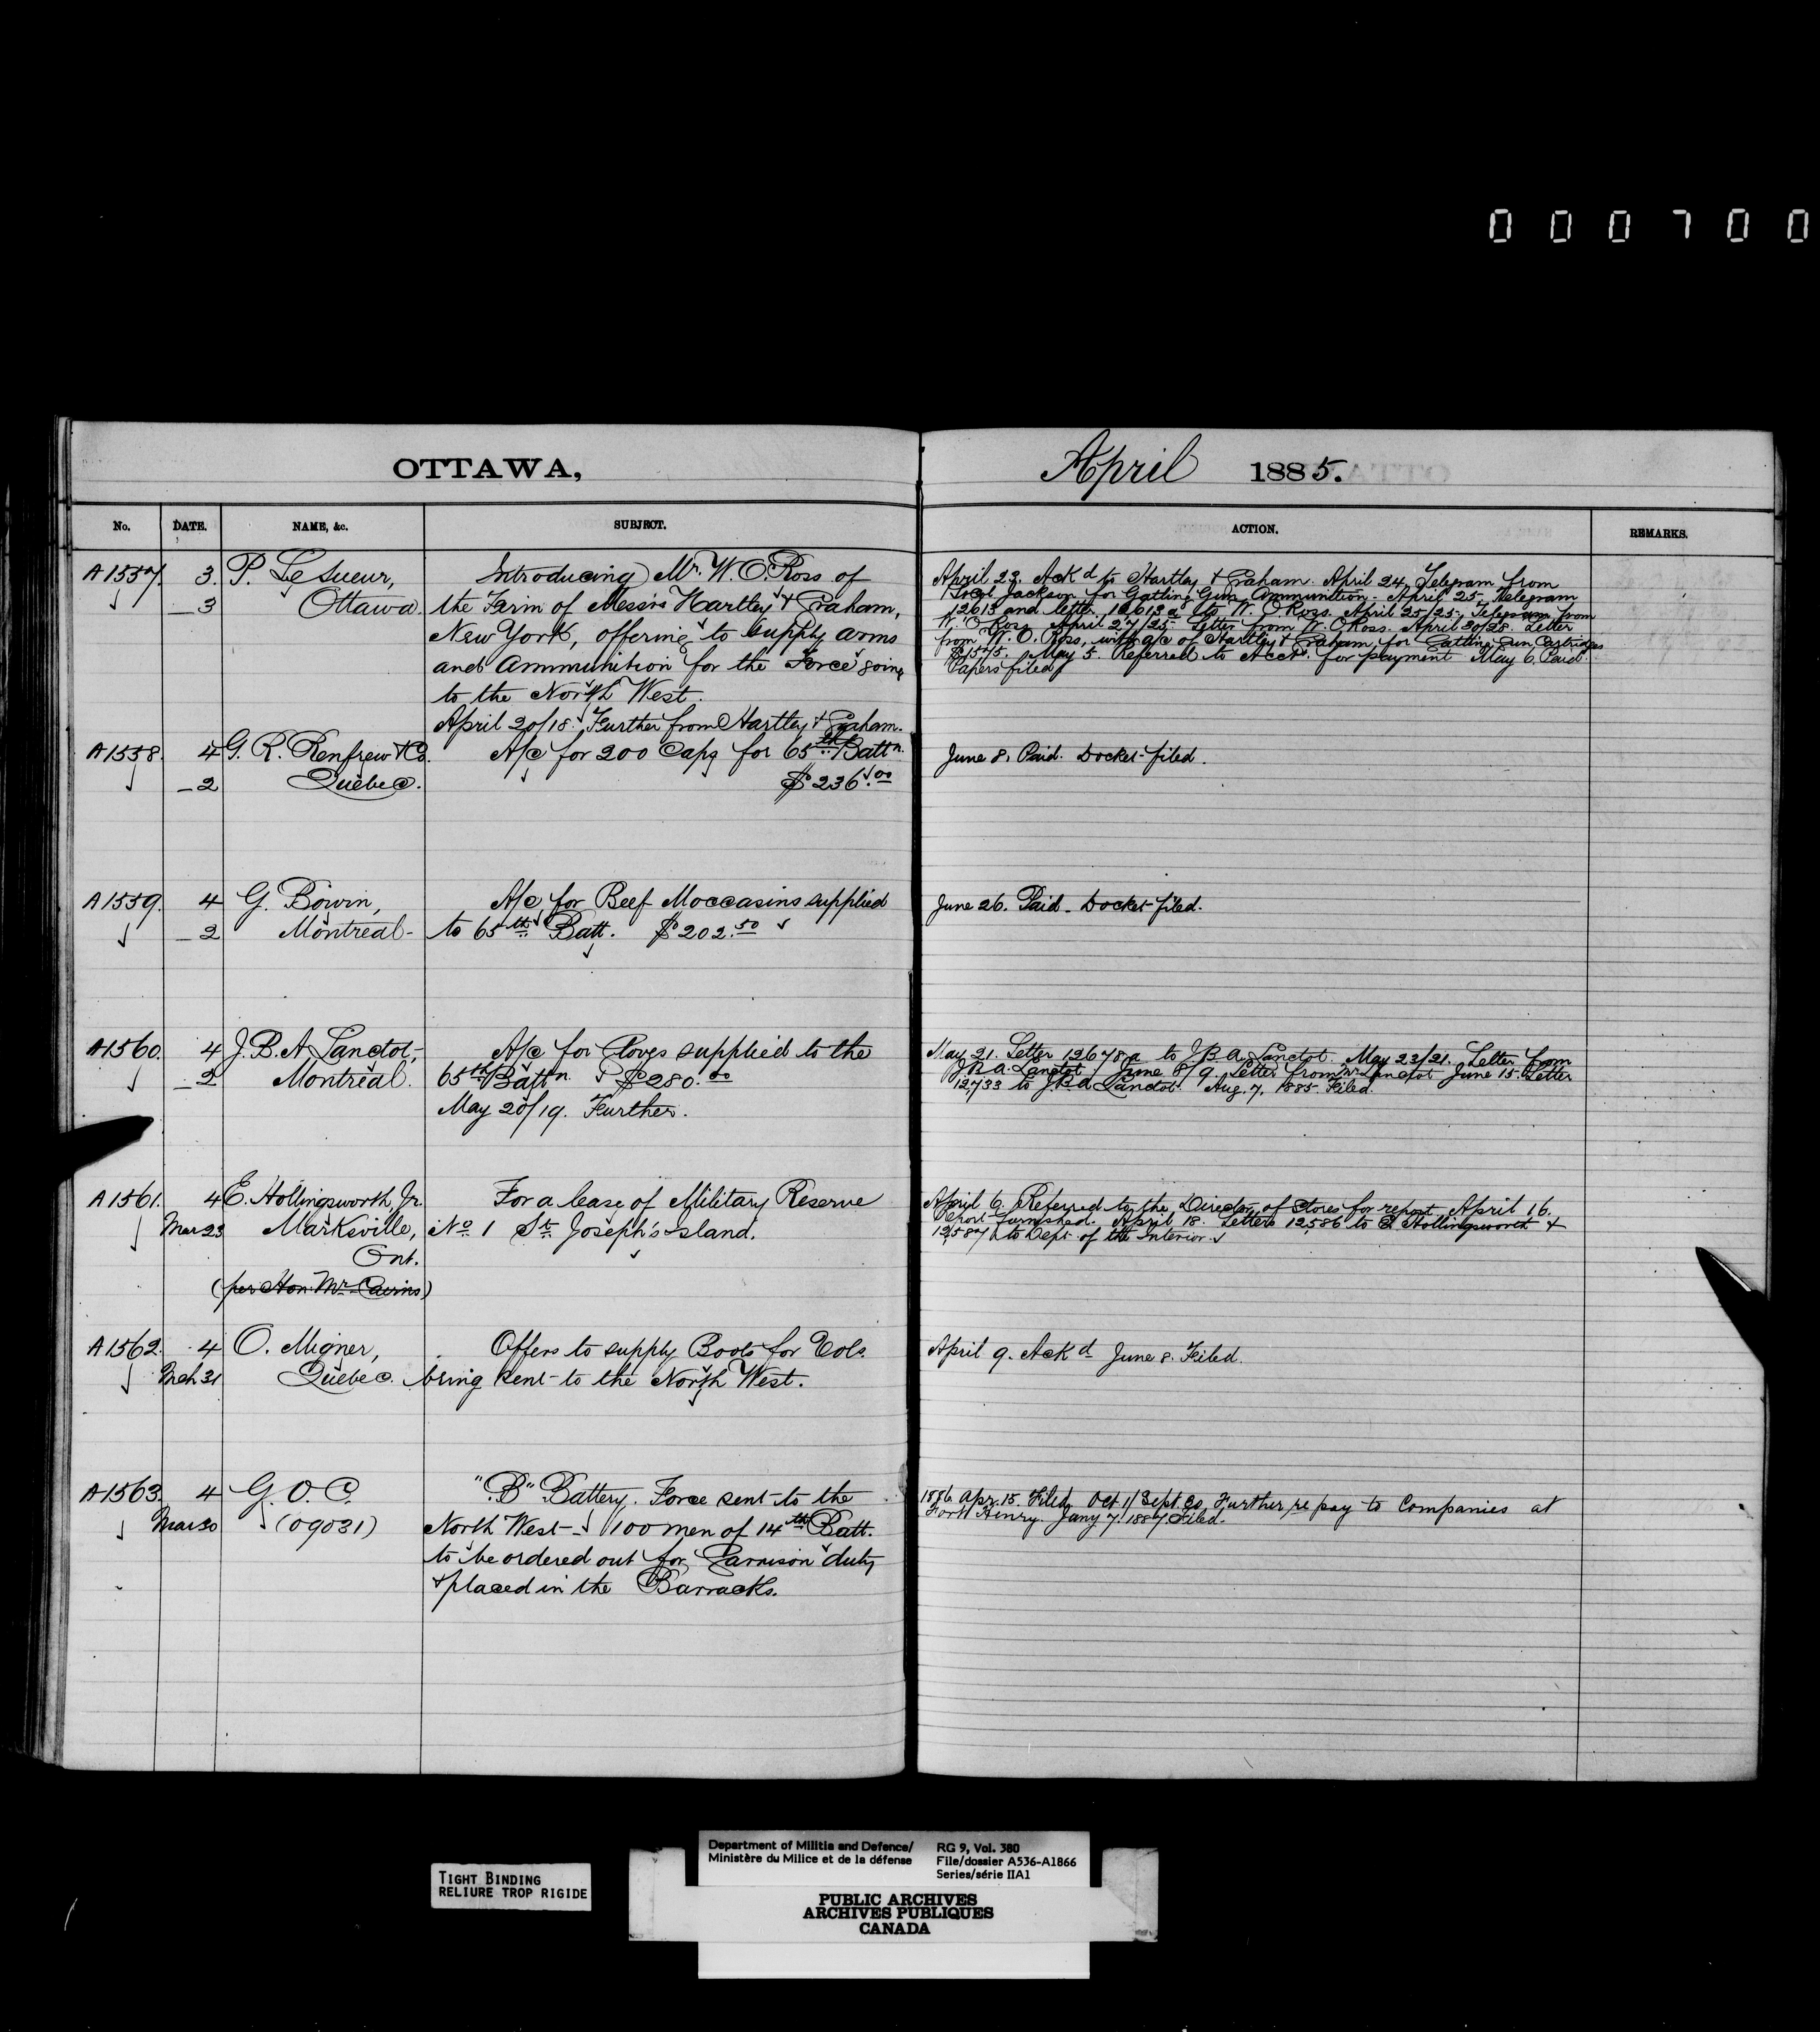 000700
OTTAWA,
April 1885.
No. DATE. NAME, &c. SUBJECT. ACTION. REMARKS.
A1557. 3. P. LeSueur, Introducing Mr. W. O. Ross of
— 3 Ottawa. the Firm of Messrs Hartley & Graham,
New York, offering to supply arms
and Ammunition for the Force going
to the North West.
April 20/18. Further from Hartley & Graham.
April 23. Ackd to Hartley & Graham. April 24. Telegram from
Lt Col Jackson for Gatling Gun Ammunition. April 25. Telegram
12613 and letter 12613a to W. O. Ross. April 25/25. Telegram from
W. O. Ross. April 27/25. Letter from W. O. Ross. April 30/28. Letter
from W. O. Ross, with a/c of Hartley & Graham for Gatling Gun Cartridges
May 5. Referred to Acct. for payment May 6. Paid.
Papers filed
A1558. 4 G. R. Renfrew & Co. A/c for 200 Caps for 65th Battn.
— 2 Quebec. $236.00
June 8. Paid. Docket filed.
A1559. 4 G. Boivin, A/c for Beef Moccasins supplied
— 2 Montreal - to 65th Batt. $202.50
June 26. Paid - Docket filed.
A1560. 4 J. B. A. Lanctot, A/c for Gloves supplied to the
— 2 Montreal. 65th Battn. $280.00
May 20/19. Further.
May 21. Letter 12678a to J B A Lanctot. May 23/21. Letter from
J B A. Lanctot. June 8/9. Letter from Mr Lanctot June 15 Letter
12,733 to J B A Lanctot. Aug. 7. 1885. Filed.
A1561. 4 E. Hollingsworth, Jr. For a lease of Military Reserve
Mar 23 Marksville, No. 1 St. Joseph's Island.
Ont.
(per Hon. Mr. Cairns)
April 6. Referred to the Director of Stores for report. April 16.
Report furnished. April 18. Letters 12,586 to E. Hollingsworth &
12,587 to Dept. of the Interior.
A1562. 4 O. Migner, Offers to supply Boots for Vols.
Mch 31 Quebec. being sent to the North West.
April 9. Ackd June 8. Filed.
A1563. 4 G. O. C. "B" Battery. Force sent to the
Mar 30 (09031) North West - 100 men of 14th Batt.
to be ordered out for Garrison duty
& placed in the Barracks.
1886. Apr. 15. Filed. Oct 1/Sept. 30, Further re pay to Companies at
Fort Henry. Jany 7. 1887. Filed.
TIGHT BINDING
RELIURE TROP RIGIDE
Department of Militia and Defence/
Ministère du Milice et de la défense
RG 9, Vol. 380
File/dossier A536-A1866
Series/série IIA1
PUBLIC ARCHIVES
ARCHIVES PUBLIQUES
CANADA